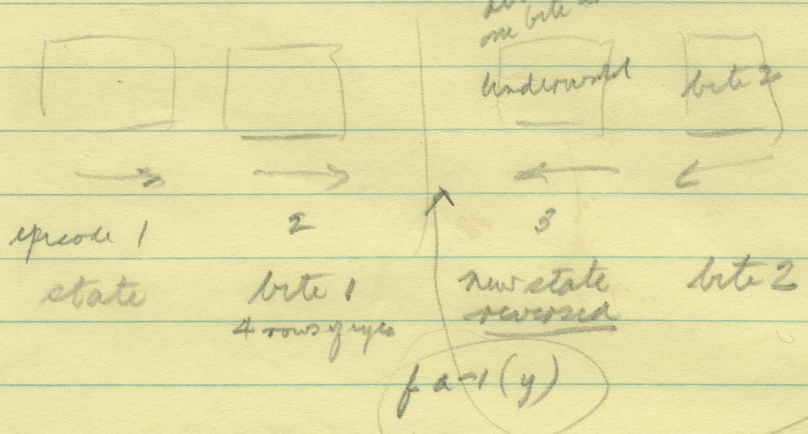 one bite
Underworld
bite 2
episode 1
2
3
state
bite 1
new state
bite 2
4 rows of eyes
reversed
f a-1 (y)